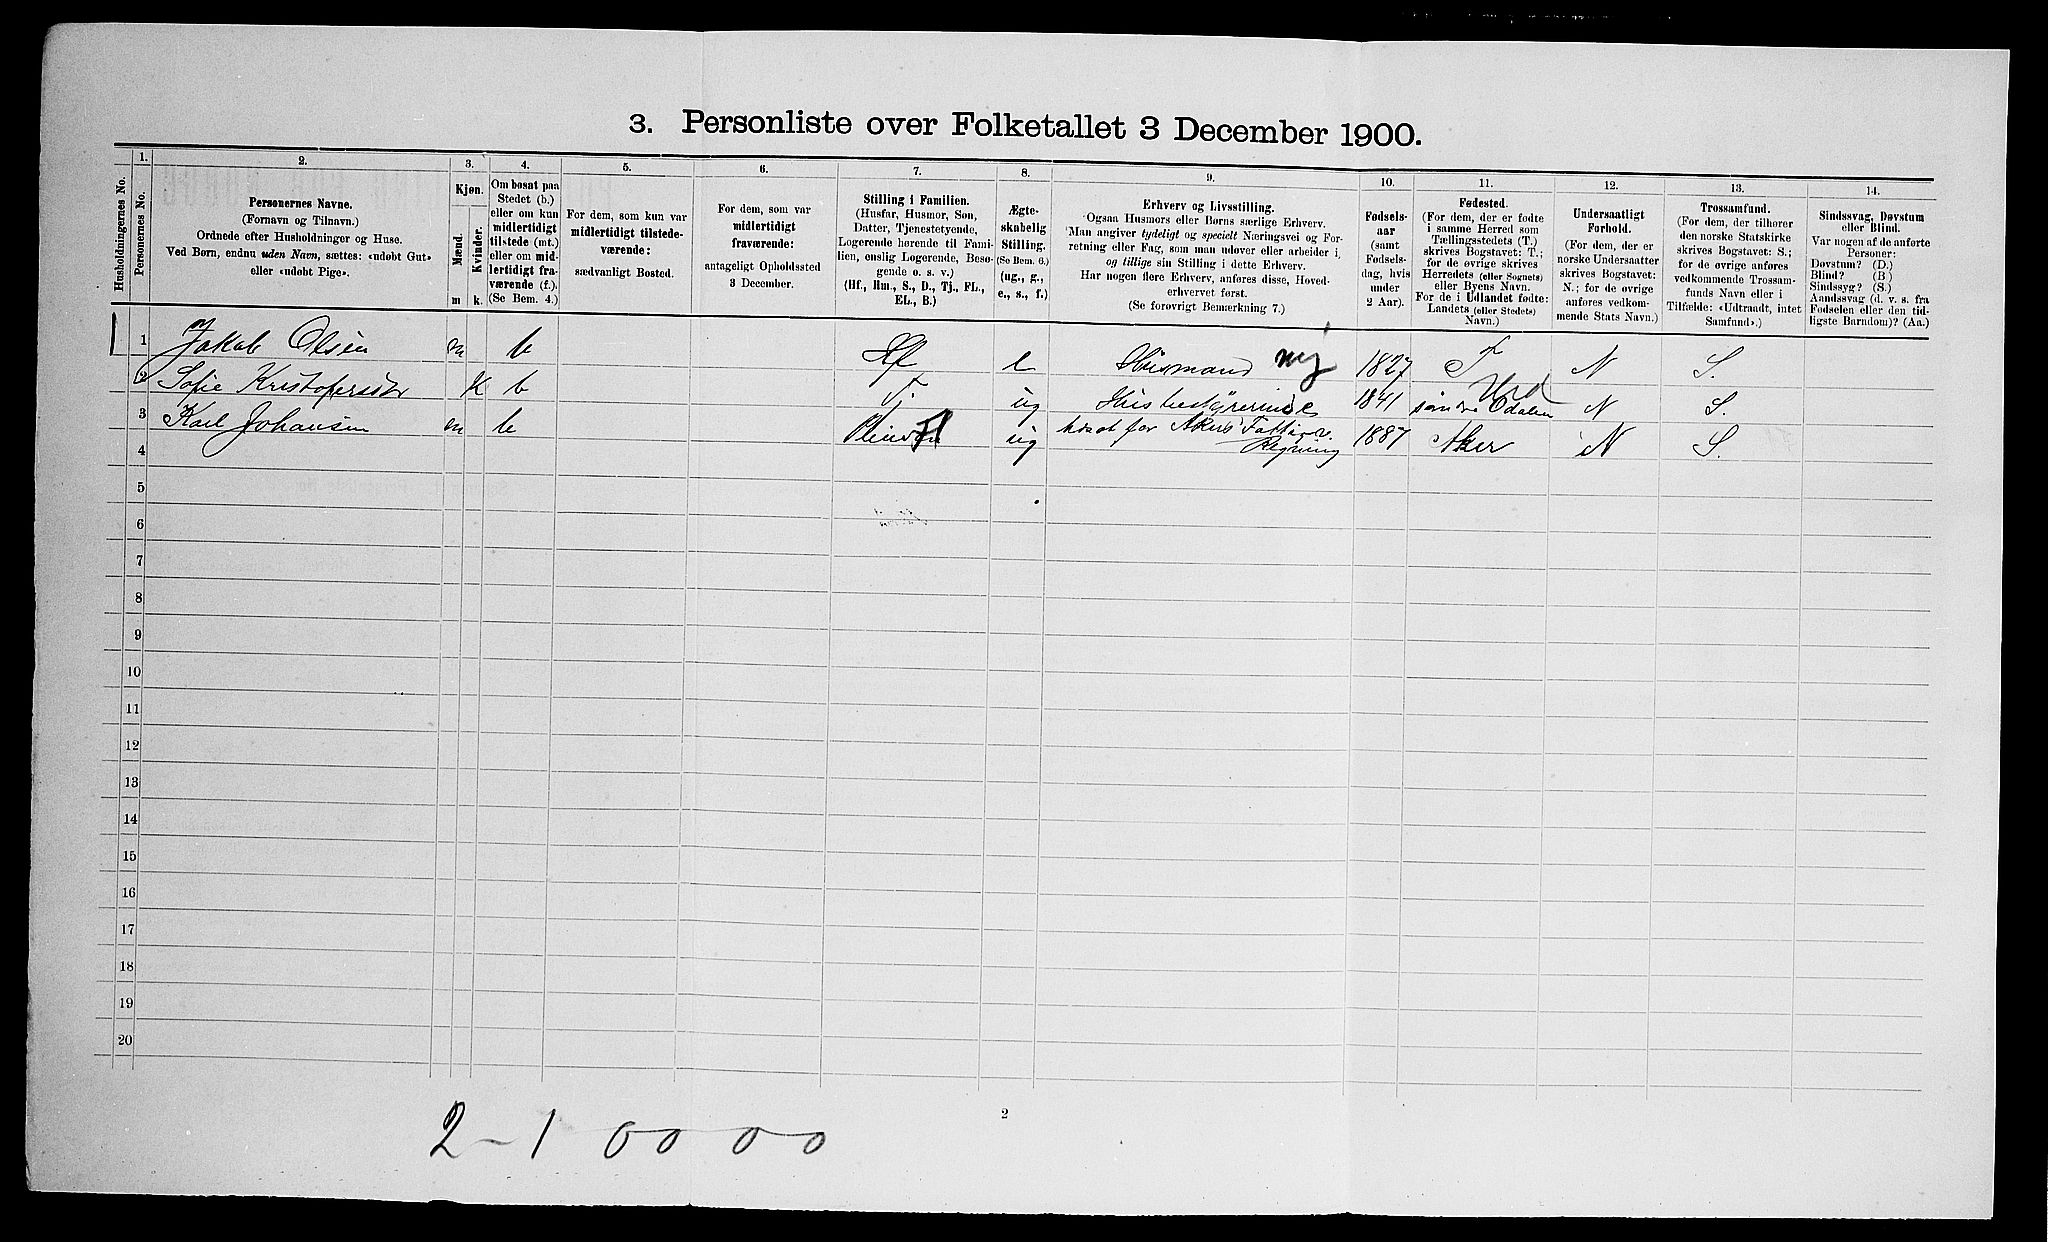 3. Personliste over Folketallet 3 December 1900.
1. 2. 3. 4. 5. 6. 7. 8. 9. 10. 11. 12. 13. 14.
Husholdningernes No.
Personernes No.
Personernes Navne.
(Fornavn og Tilnavn.)
Ordnede efter Husholdninger og Huse.
Ved Børn, endnu uden Navn, sættes: «udøbt Gut»
eller «udøbt Pige».
Kjøn.
Mænd.
Kvinder.
m k.
Om bosat paa
Stedet (b.)
eller om kun
midlertidigt
tilstede (mt.)
eller om mid-
lertidigt fra-
værende (f.).
(Se Bem. 4.)
For dem, som kun var
midlertidigt tilstede-
værende:
sædvanligt Bosted.
For dem, som var
midlertidigt
fraværende:
antageligt Opholdssted
3 December.
Stilling i Familien.
(Husfar, Husmor, Søn,
Datter, Tjenestetyende,
Logerende hørende til Fami-
lien, enslig Logerende, Besø-
gende o. s. v.)
(Hf., Hm., S., D., Tj., FL.,
EL., B.)
Ægte-
skabelig
Stilling.
(Se Bem. 6.)
(ug., g.,
e., s., f.)
Erhverv og Livsstilling.
Ogsaa Husmors eller Børns særlige Erhverv.
Man angiver tydeligt og specielt Næringsvei og For-
retning eller Fag, som man udøver eller arbeider i,
og tillige sin Stilling i dette Erhverv.
Har nogen flere Erhverv, anføres disse, Hoved-
erhvervet først.
(Se forøvrigt Bemerkning 7.)
Fødsels-
aar
(samt
Fødsels-
dag, hvis
under
2 Aar).
Fødested.
(For dem, der er fødte
i samme Herred som
Tællingsstedets (T.)
skrives Bogstavet: T.;
for de øvrige skrives
Herredets (eller Sognets)
eller Byens Navn.
For de i Udlandet fødte:
Landets (eller Stedets)
Navn.)
Undersaatligt
Forhold.
(For dem, der er
norske Undersaatter
skrives Bogstavet:
N.; for de øvrige
anføres vedkom-
mende Stats Navn.)
Trossamfund.
(For dem, der tilhører
den norske Statskirke
skrives Bogstavet: S.;
for de øvrige anføres
vedkommende Trossam-
funds Navn eller i
Tilfælde: «Udtraadt, intet
Samfund».)
Sindssvag, Døvstum
eller Blind.
Var nogen af de anførte
Personer:
Døvstum? (D.)
Blind? (B.)
Sindssyg? (S.)
Aandssvag (d. v. s. fra
Fødselen eller den tid-
ligste Barndom)? (Aa.)
1 Jakob Olsen m b Hf e Husmand 1827 T N S.
2 Sofie Kristofersdtr K b T. ug Husbestyrerinde 1841 søndre Odalen N S.
3 Karl Johansen m b ug bisat for Akers Fattigv. 1887 Aker N S.
Regning
4
5
6
7
8
9
10
11
12
13
14
15
16
17
18
19
20
2
2 - 1 00 00